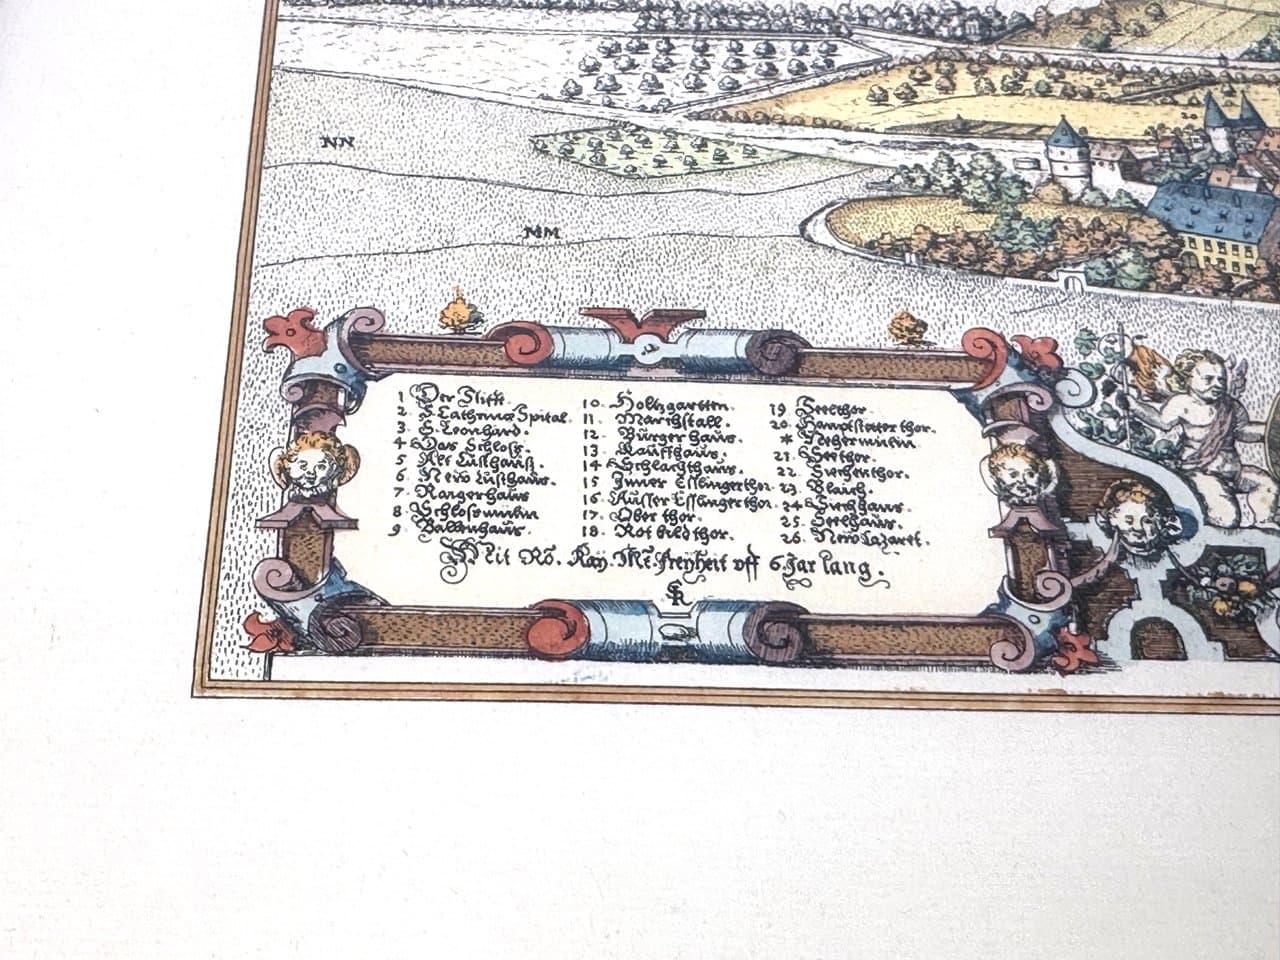 NN
MM
1 Der Stifft.
2 S. Cathrinæ Spital.
3 S. Leonhard.
4 Das Schlosz.
5 Alt Lusthausz.
6 New Lusthaus.
7 Rangerhaus
8 Schlosmülin
9 Ballenhaus.
10. Holtzgartten.
11. Marchstall.
12. Bürgerhaus.
13. Kauffhaus.
14 Schlachthaus.
15 Inner Esslingerthor
16. Äusser Esslingerthor.
17. Ober thor.
18. Rot bild thor.
19. Seelthor.
20. Hauptstater thor.
* Nehermülin.
21. Seethor.
22. Siechenthor.
23. Blaich.
24 Siechhaus.
25. Seelhaus.
26. New Lazaret.
Mit Rö. Kay. Mt. freyheit vff 6. Jar lang.